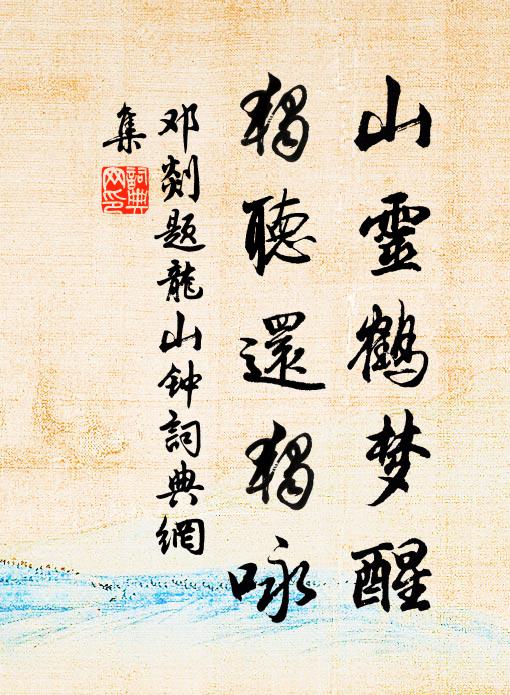 山靈鶴梦醒
獨聽還獨咏
邓剡题龍山钟詞典網
集
詞典
网印